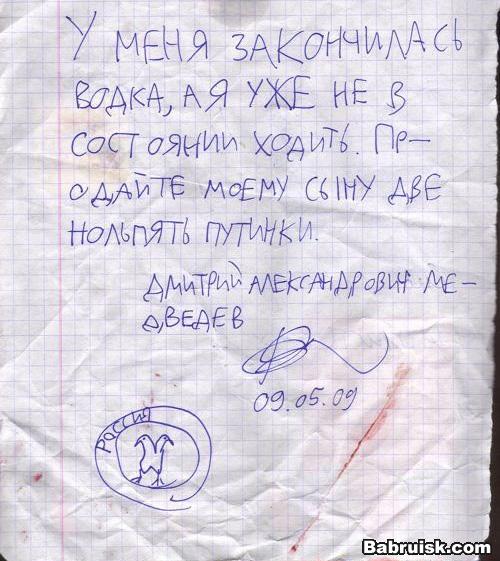 У МЕНЯ ЗАКОНЧИЛАСЬ
ВОДКА, А Я УЖЕ НЕ В
СОСТОЯНИИ ХОДИТЬ. ПР–
ОДАЙТЕ МОЕМУ СЫНУ ДВЕ
НОЛЬПЯТЬ ПУТИНКИ.
ДМИТРИЙ АЛЕКСАНДРОВИЧ МЕ–
ДВЕДЕВ
09.05.09
РОССИЯ
Babruisk.com